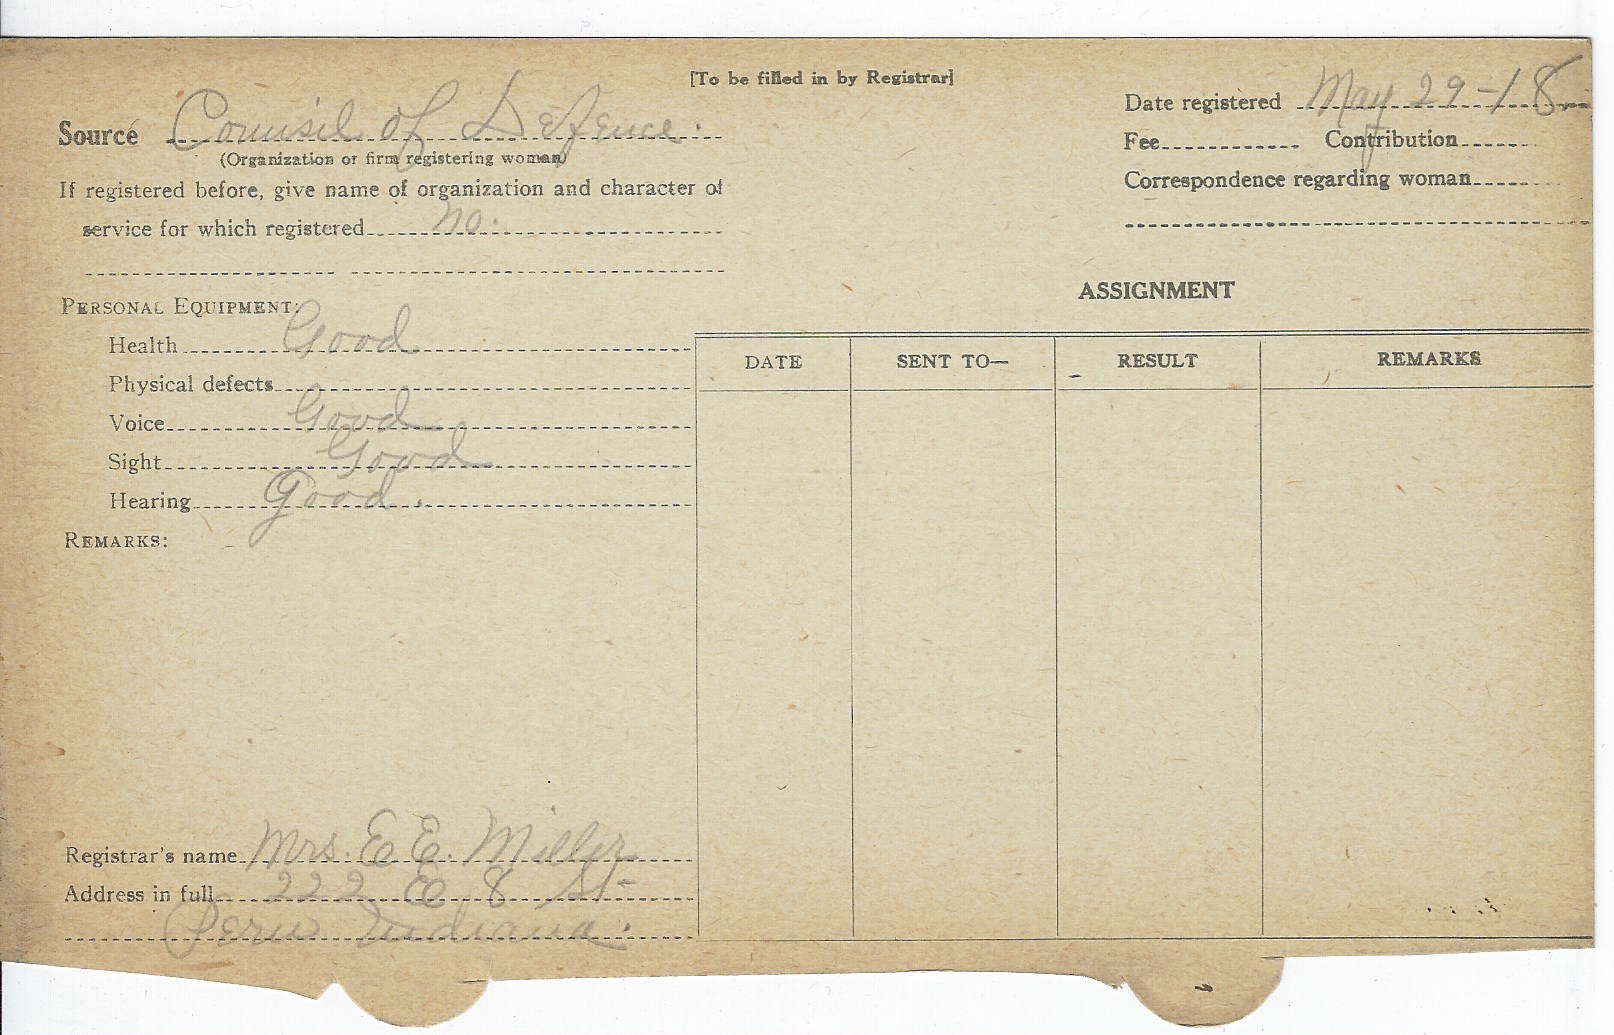 [To be filled in by Registrar]
Date registered May 29-18
Source Counsil of Defence.
(Organization or firm registering woman)
Fee Contribution
If registered before, give name of organization and character of
Correspondence regarding woman
service for which registered no.
PERSONAL EQUIPMENT:
ASSIGNMENT
Health Good
DATE SENT TO— RESULT REMARKS
Physical defects
Voice Good
Sight Good
Hearing Good.
REMARKS:
Registrar's name Mrs. E E. Miller
Address in full 222 E 8 St-
Peru Indiana.